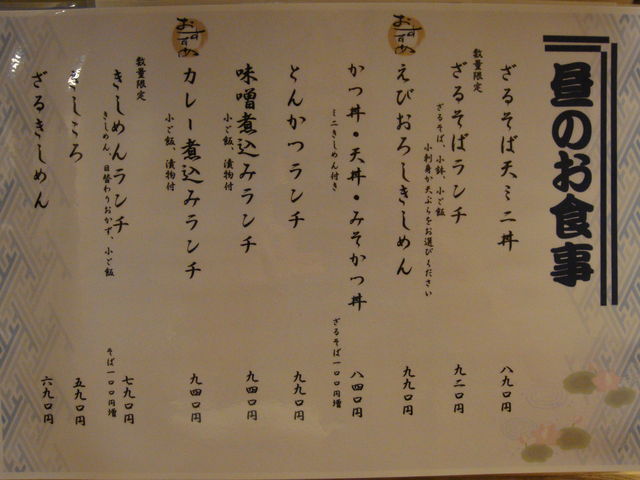 昼のお食事
ざるそば天ミニ丼
八九〇円
数量限定
ざるそばランチ
ざるそば、小鉢、小ご飯
小刺身か天ぷらをお選びください
九二〇円
おすすめ
えびおろしきしめん
九九〇円
かつ丼・天丼・みそかつ丼
ミニきしめん付き
ざるそば一〇〇円増
八四〇円
とんかつランチ
九九〇円
味噌煮込みランチ
小ご飯、漬物付
九四〇円
おすすめ
カレー煮込みランチ
小ご飯、漬物付
九四〇円
数量限定
きしめんランチ
きしめん、日替わりおかず、小ご飯
そば一〇〇円増
七九〇円
きしころ
五九〇円
ざるきしめん
六九〇円